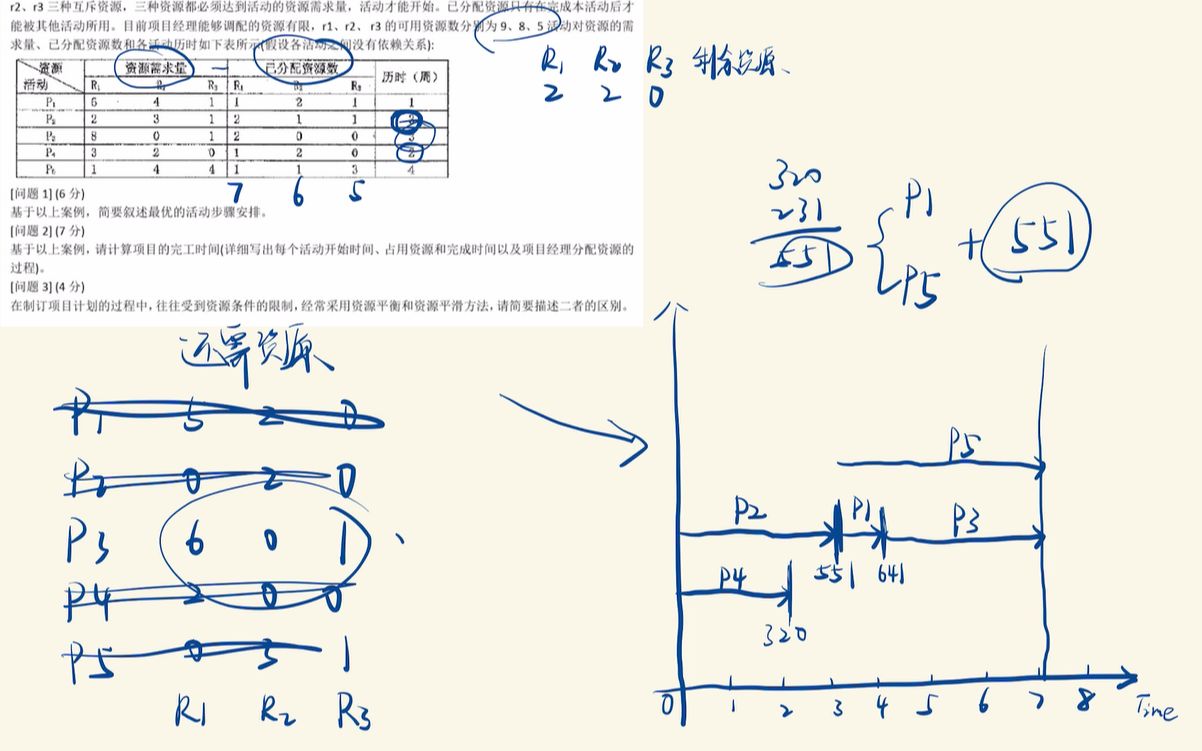 r2、r3 三种互斥资源，三种资源都必须达到活动的资源需求量，活动才能开始。已分配资源只有在完成本活动后才
能被其他活动所用。目前项目经理能够调配的资源有限，r1、r2、r3 的可用资源数分别为 9、8、5活动对资源的需
求量、已分配资源数和各活动历时如下表所示(假设各活动之间没有依赖关系):
资源 资源需求量 已分配资源数 历时（周）
活动 R₁ R₂ R₃ R₁ R₂ R₃
P₁ 6 4 1 1 2 1 1
P₂ 2 3 1 2 1 1
P₃ 8 0 1 2 0 0 3
P₄ 3 2 0 1 2 0 2
P₅ 1 4 4 1 1 3 4
7 6 5
[问题 1](6 分)
基于以上案例，简要叙述最优的活动步骤安排。
[问题 2](7 分)
基于以上案例，请计算项目的完工时间(详细写出每个活动开始时间、占用资源和完成时间以及项目经理分配资源的
过程)。
[问题 3](4 分)
在制订项目计划的过程中，往往受到资源条件的限制，经常采用资源平衡和资源平滑方法，请简要描述二者的区别。
R1 R2 R3 剩余资源、
2 2 0
320
231
551
P1
P5
+ 551
还需资源
P1 5 2 0
P2 0 2 0
P3 6 0 1
P4 2 0 0
P5 0 3 1
R1 R2 R3
P5
P2 P1 P3
551 641
P4
320
0 1 2 3 4 5 6 7 8 Time